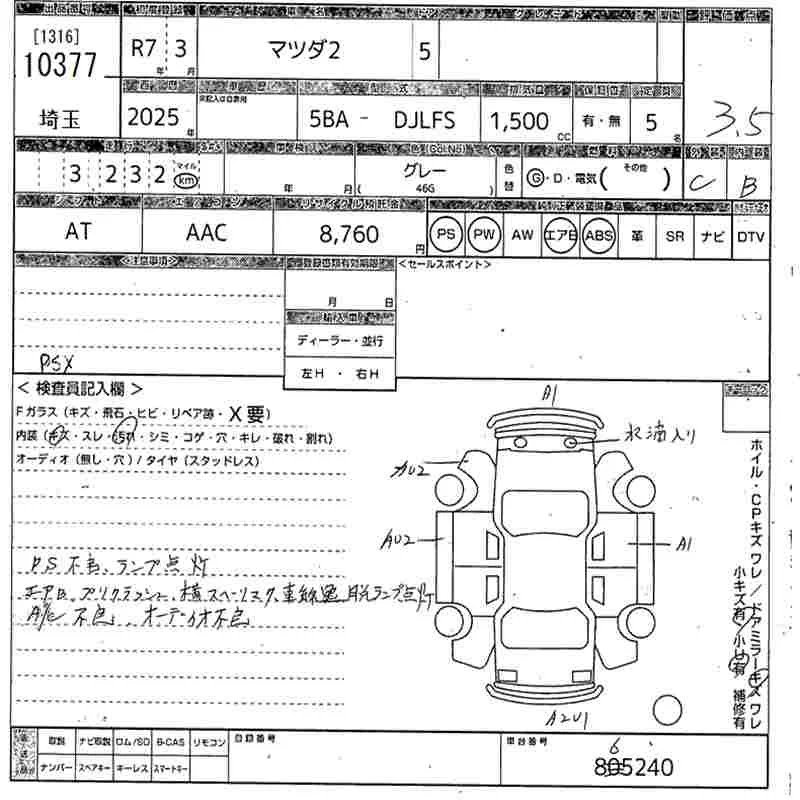 [1316]
10377
埼玉
R7 年 3 月
車名
マツダ2
5
評価点
3.5
2025 年
車歴
未記入は自家用
型式
5BA - DJLFS
排気量
1,500 CC
有・無
定員
5 名
3 2 3 2
マイル
km
年 月
色(Col.No)
グレー
( 46G )
色替
G・D・電気( その他 )
C
B
シフト
AT
エアコン
AAC
リサイクル預託金
8,760 円
PS PW AW エアB ABS 革 SR ナビ DTV
<注意事項>
PSX
登録書類有効期限
月 日
輸入車
ディーラー・並行
左H ・ 右H
<セールスポイント>
< 検査員記入欄 >
Fガラス (キズ・飛石・ヒビ・リペア跡・X要)
内装 (キズ・スレ・汚れ・シミ・コゲ・穴・キレ・破れ・割れ)
オーディオ (無し・穴) / タイヤ (スタッドレス)
PS不良、ランプ点灯
A/C 不良、オーディオ不良
A1
水滴入り
AU2
AU2
A1
A2U1
ホイル・CPキズ ワレ / ドアミラーキズ ワレ
小キズ有 / 小凹有 補修有
取説 ナビ取説 ロム/SD B-CAS リモコン
ナンバー スペアキー キーレス スマートキー
登録番号
車台番号
6
805240